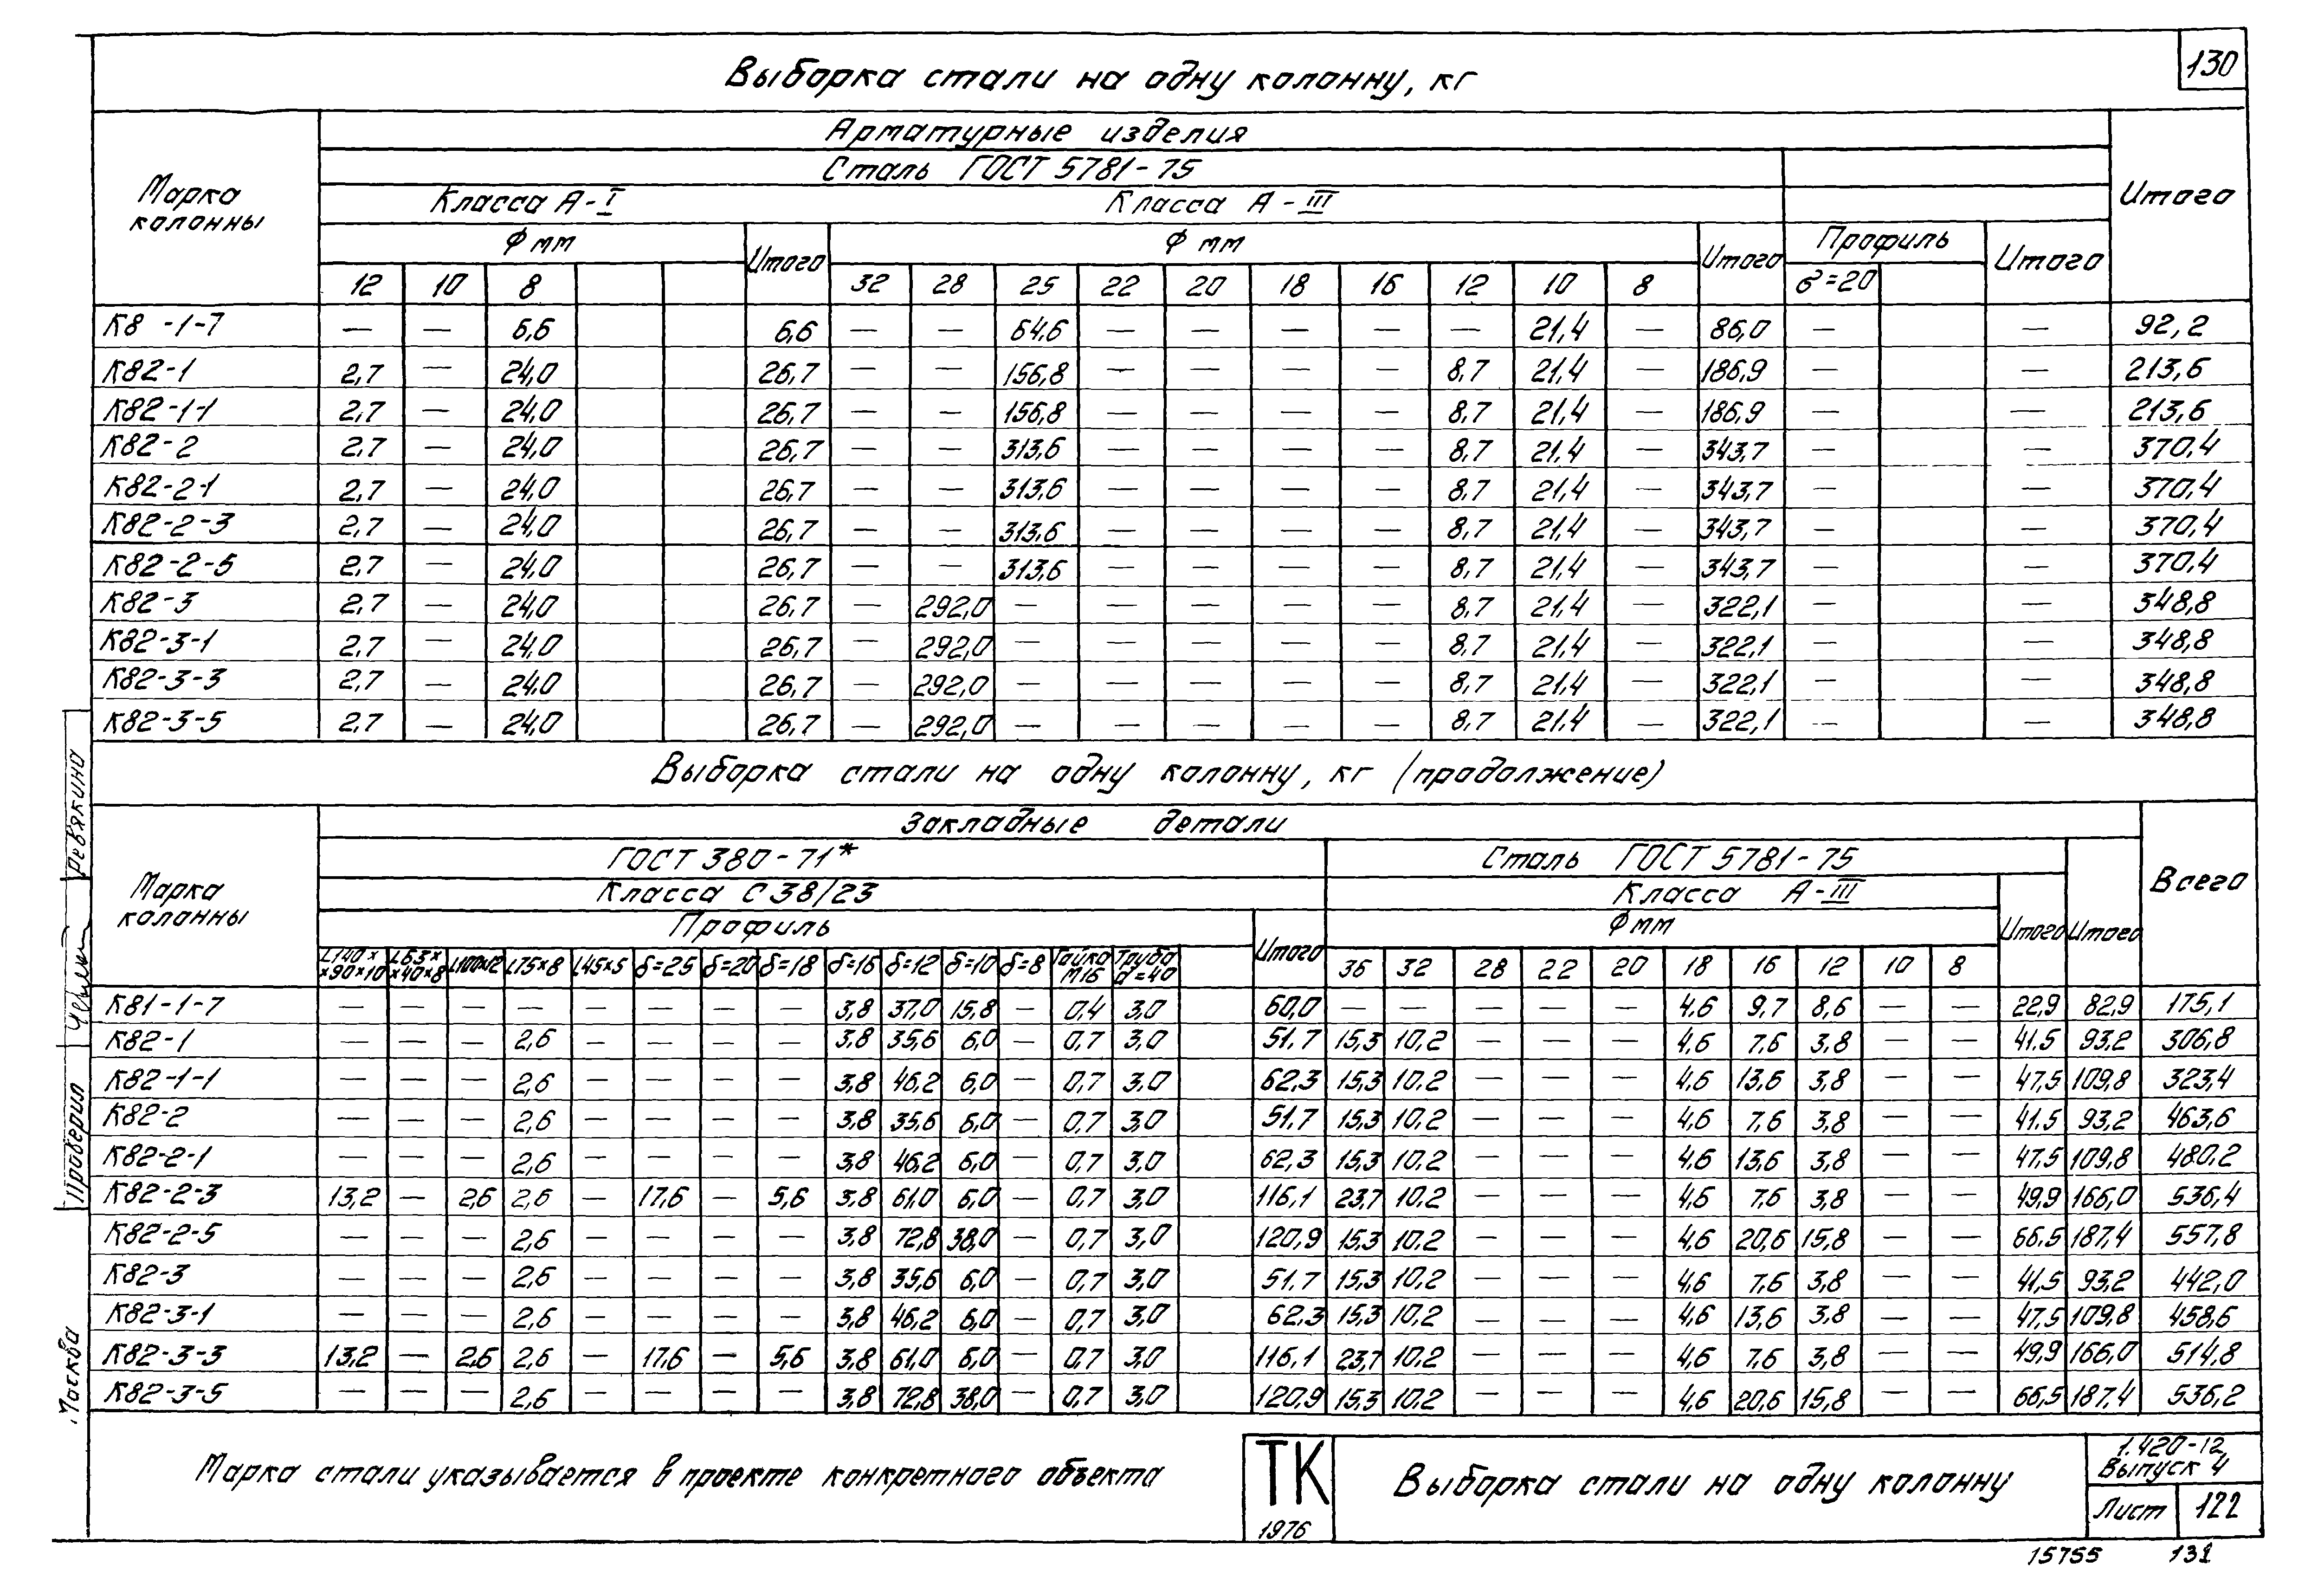 130
Выборка стали на одну колонну, кг
Марка колонны
Арматурные изделия
Итого
Сталь ГОСТ 5781-75
Класса А-I
Класса А-III
Ф мм
Итого
Ф мм
Итого
Профиль
Итого
12 10 8 32 28 25 22 20 18 16 12 10 8 б=20
К8 -1-7 — — 6,6 6,6 — — 64,6 — — — — — 21,4 — 86,0 — — 92,2
К82-1 2,7 — 24,0 26,7 — — 156,8 — — — — 8,7 21,4 — 186,9 — — 213,6
К82-1-1 2,7 — 24,0 26,7 — — 156,8 — — — — 8,7 21,4 — 186,9 — — 213,6
К82-2 2,7 — 24,0 26,7 — — 313,6 — — — — 8,7 21,4 — 343,7 — — 370,4
К82-2-1 2,7 — 24,0 26,7 — — 313,6 — — — — 8,7 21,4 — 343,7 — — 370,4
К82-2-3 2,7 — 24,0 26,7 — — 313,6 — — — — 8,7 21,4 — 343,7 — — 370,4
К82-2-5 2,7 — 24,0 26,7 — — 313,6 — — — — 8,7 21,4 — 343,7 — — 370,4
К82-3 2,7 — 24,0 26,7 — 292,0 — — — — — 8,7 21,4 — 322,1 — — 348,8
К82-3-1 2,7 — 24,0 26,7 — 292,0 — — — — — 8,7 21,4 — 322,1 — — 348,8
К82-3-3 2,7 — 24,0 26,7 — 292,0 — — — — — 8,7 21,4 — 322,1 — — 348,8
К82-3-5 2,7 — 24,0 26,7 — 292,0 — — — — — 8,7 21,4 — 322,1 — — 348,8
Выборка стали на одну колонну, кг (продолжение)
Марка колонны
Закладные детали
Всего
ГОСТ 380-71*
Сталь ГОСТ 5781-75
Класса С 38/23
Класса А-III
Профиль
Итого
Ф мм
Итого
Итого
L140××90×10 L63××40×8 L100×12 L75×8 L45×5 δ=25 δ=20 δ=18 δ=16 δ=12 δ=10 δ=8 Гайка М16 Труба d=40 36 32 28 22 20 18 16 12 10 8
К81-1-7 — — — — — — — — 3,8 37,0 15,8 — 0,4 3,0 60,0 — — — — — 4,6 9,7 8,6 — — 22,9 82,9 175,1
К82-1 — — — 2,6 — — — — 3,8 35,6 6,0 — 0,7 3,0 51,7 15,3 10,2 — — — 4,6 7,6 3,8 — — 41,5 93,2 306,8
К82-1-1 — — — 2,6 — — — — 3,8 46,2 6,0 — 0,7 3,0 62,3 15,3 10,2 — — — 4,6 13,6 3,8 — — 47,5 109,8 323,4
К82-2 — — — 2,6 — — — — 3,8 35,6 6,0 — 0,7 3,0 51,7 15,3 10,2 — — — 4,6 7,6 3,8 — — 41,5 93,2 463,6
К82-2-1 — — — 2,6 — — — — 3,8 46,2 6,0 — 0,7 3,0 62,3 15,3 10,2 — — — 4,6 13,6 3,8 — — 47,5 109,8 480,2
К82-2-3 13,2 — 2,6 2,6 — 17,6 — 5,6 3,8 61,0 6,0 — 0,7 3,0 116,1 23,7 10,2 — — — 4,6 7,6 3,8 — — 49,9 166,0 536,4
К82-2-5 — — — 2,6 — — — — 3,8 72,8 38,0 — 0,7 3,0 120,9 15,3 10,2 — — — 4,6 20,6 15,8 — — 66,5 187,4 557,8
К82-3 — — — 2,6 — — — — 3,8 35,6 6,0 — 0,7 3,0 51,7 15,3 10,2 — — — 4,6 7,6 3,8 — — 41,5 93,2 442,0
К82-3-1 — — — 2,6 — — — — 3,8 46,2 6,0 — 0,7 3,0 62,3 15,3 10,2 — — — 4,6 13,6 3,8 — — 47,5 109,8 458,6
К82-3-3 13,2 — 2,6 2,6 — 17,6 — 5,6 3,8 61,0 6,0 — 0,7 3,0 116,1 23,7 10,2 — — — 4,6 7,6 3,8 — — 49,9 166,0 514,8
К82-3-5 — — — 2,6 — — — — 3,8 72,8 38,0 — 0,7 3,0 120,9 15,3 10,2 — — — 4,6 20,6 15,8 — — 66,5 187,4 536,2
Марка стали указывается в проекте конкретного объекта
ТК
1976
Выборка стали на одну колонну
1.420-12
Выпуск 4
Лист 122
15755 131
Ревякина
Проверил
Москва